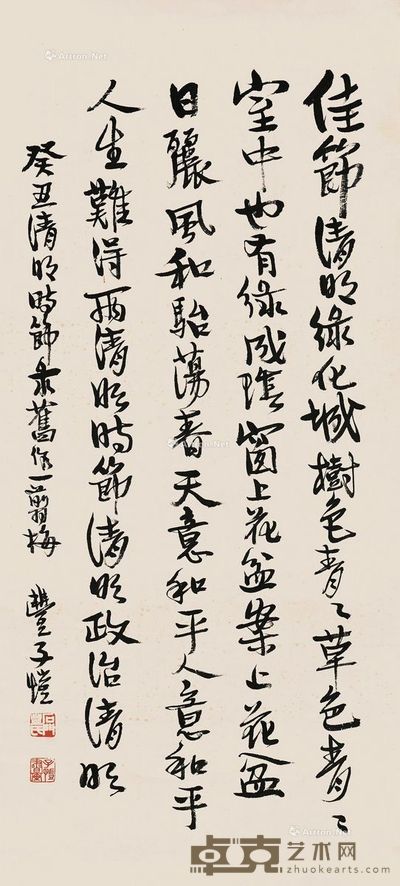 佳節清明綠化城樹色青々草色青々
室中也有綠成陰窗上花盆案上花盆
日麗風和駘蕩春天意和平人意和平
人生難得兩清明時節清明政治清明
癸丑清明時節錄舊作一剪梅 豐子愷
石門豐氏
Artron.Net
卓克艺术网
zhuokearts.com